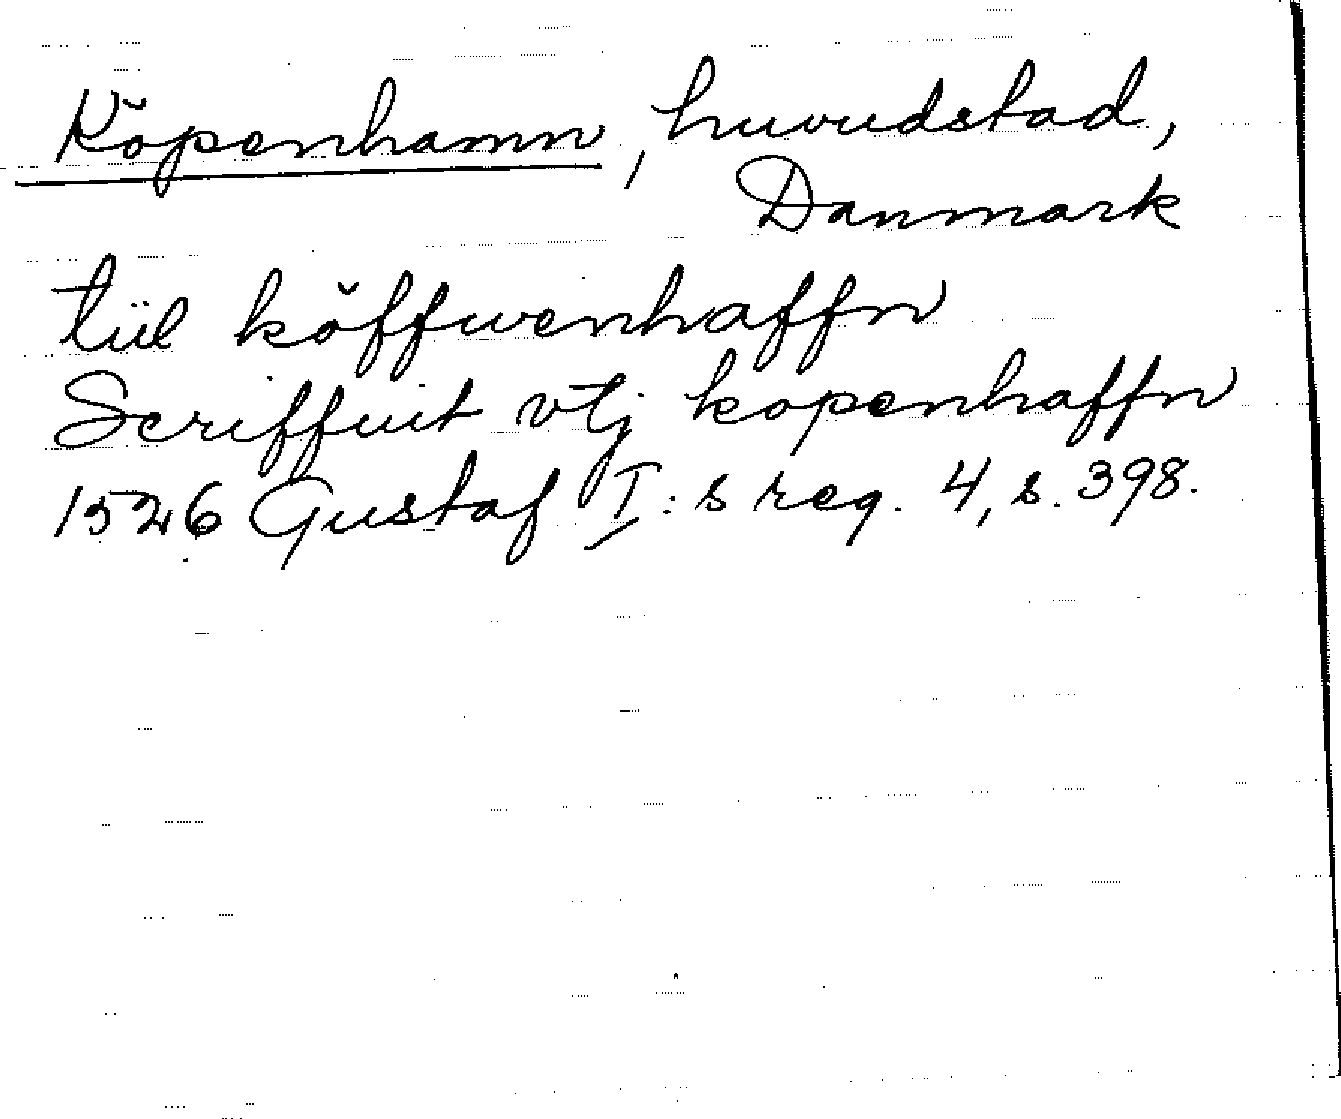 Köpenhamn, huvudstad,
Danmark
tiil köffwenhaffn
Scriffuit vtj kopenhaffn
1526 Gustaf I:s reg. 4, s. 398.